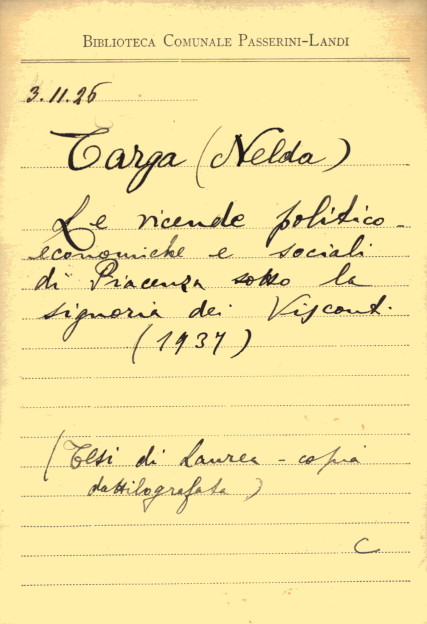 BIBLIOTECA COMUNALE PASSERINI-LANDI
3.11.26
Targa (Nelda)
Le vicende politico-
economiche e sociali
di Piacenza sotto la
signoria dei Visconti
(1937)
(Tesi di Laurea - copia
dattilografata)
C